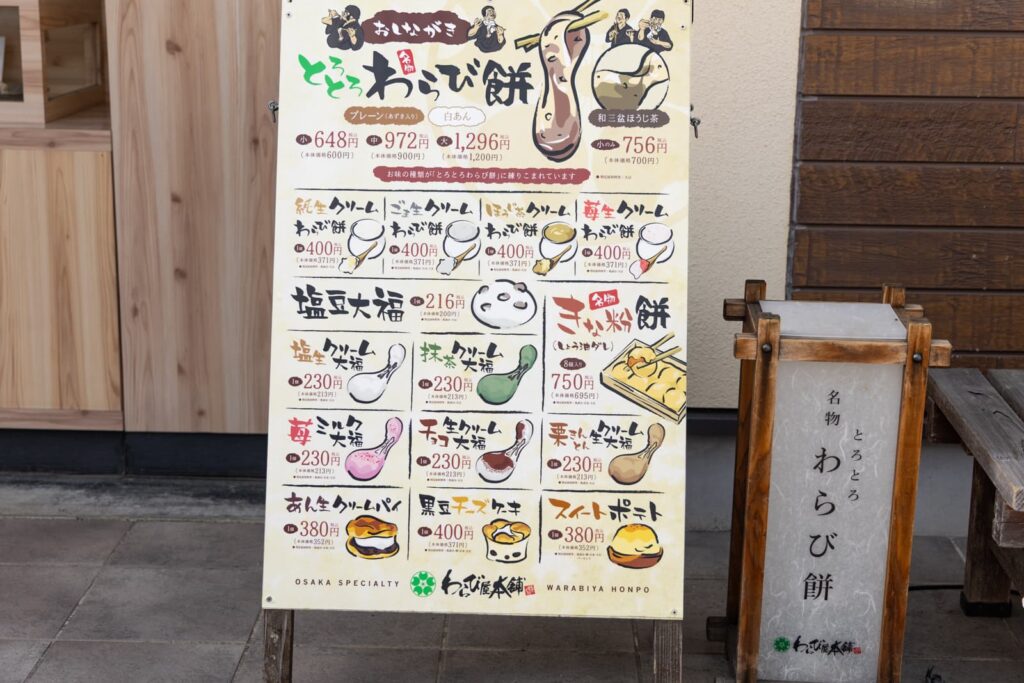 おしながき
とろとろ
名物
わらび餅
プレーン(あずき入り)
白あん
和三盆ほうじ茶
小 648円 税込
(本体価格600円)
中 972円 税込
(本体価格900円)
大 1,296円 税込
(本体価格1,200円)
小のみ 756円 税込
(本体価格700円)
お味の種類が「とろとろわらび餅」に練りこまれています
純生クリーム
わらび餅
1個 400円 税込
(本体価格371円)
ごま生クリーム
わらび餅
1個 400円 税込
(本体価格371円)
ほうじ茶クリーム
わらび餅
1個 400円 税込
(本体価格371円)
苺生クリーム
わらび餅
1個 400円 税込
(本体価格371円)
塩豆大福
1個 216円 税込
(本体価格200円)
名物
きな粉餅
(しょう油ダレ)
8個入り
750円 税込
(本体価格695円)
塩生クリーム大福
1個 230円 税込
(本体価格213円)
抹茶生クリーム大福
1個 230円 税込
(本体価格213円)
苺ミルク大福
1個 230円 税込
(本体価格213円)
チョコ生クリーム大福
1個 230円 税込
(本体価格213円)
栗きんとん生クリーム大福
1個 230円 税込
(本体価格213円)
あん生クリームパイ
1個 380円 税込
(本体価格352円)
黒豆チーズケーキ
1個 400円 税込
(本体価格371円)
スイートポテト
1個 380円 税込
(本体価格352円)
OSAKA SPECIALTY
わらび屋本舗
WARABIYA HONPO
名物
とろとろ
わらび餅
わらび屋本舗